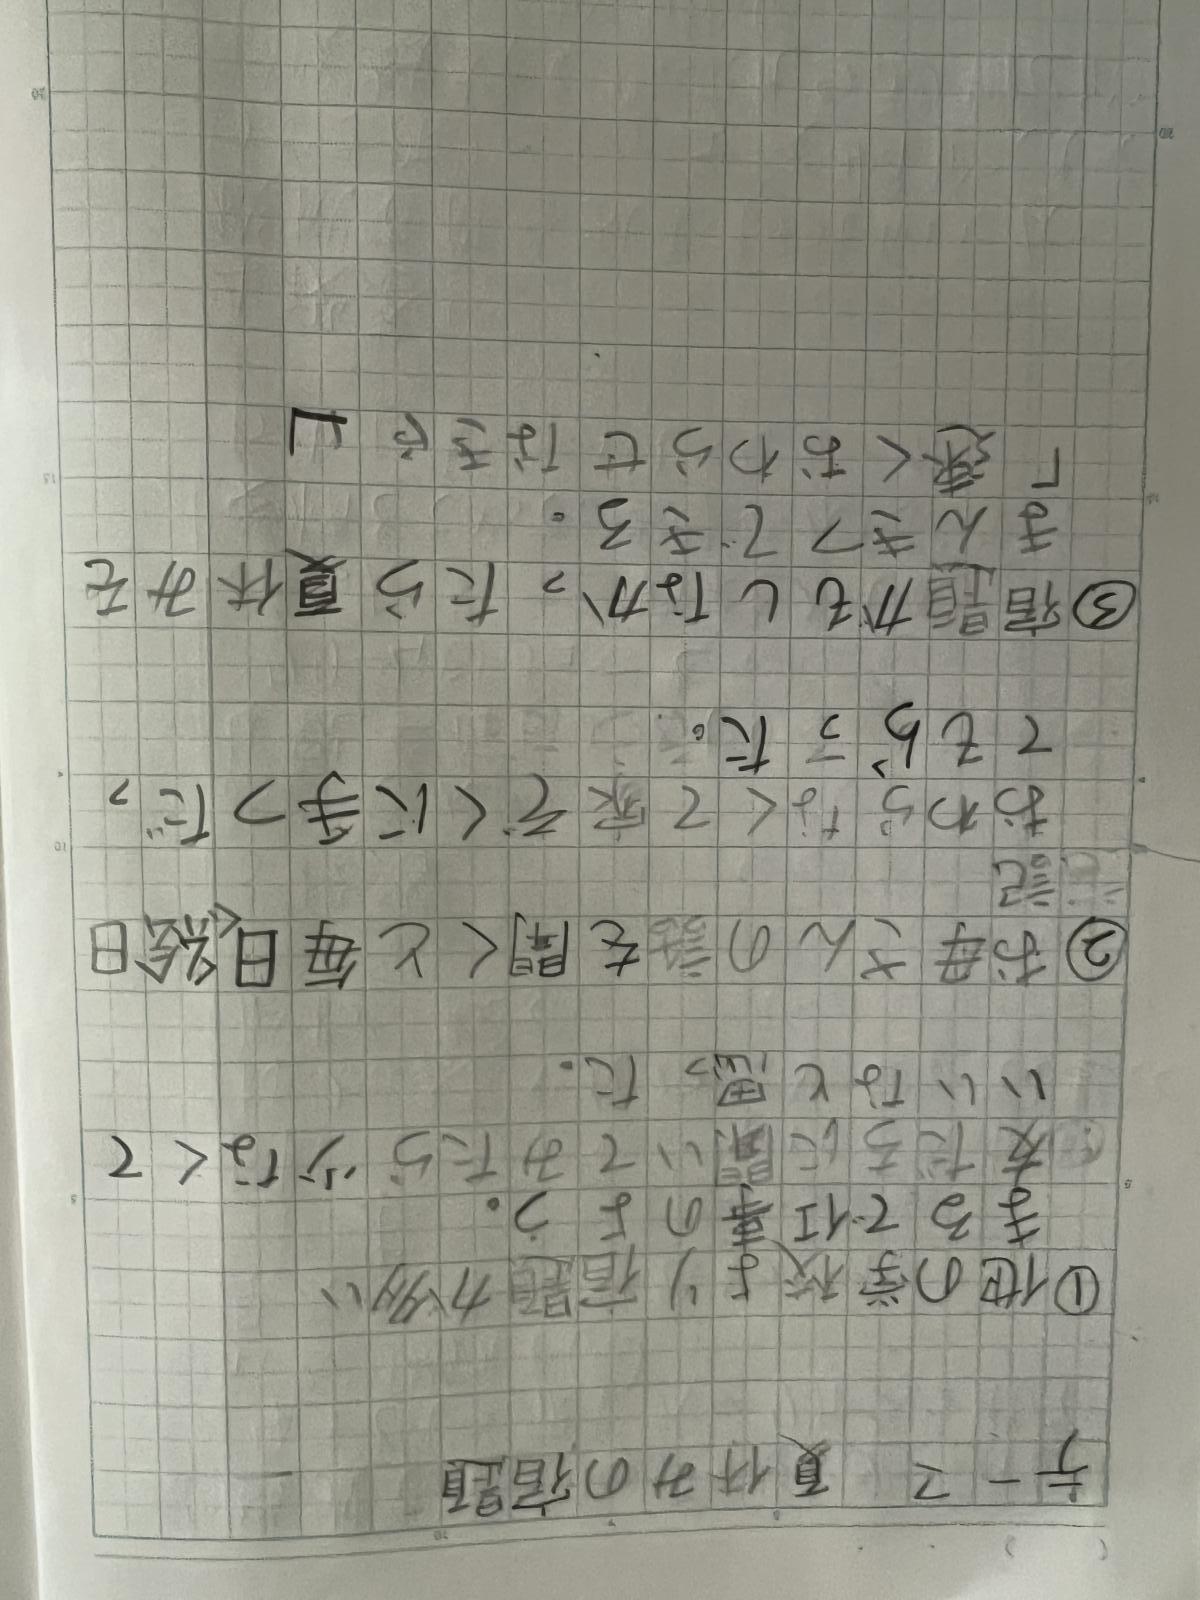 テーマ 夏休みの宿題
①他の学校より宿題が多い
まるで仕事のよう。
友だちに聞いてみたら少なくて
いいなと思った。
②お母さんの話を聞くと毎日絵日
記
おわらなくて家ぞくに手つだっ
てもらった。
③宿題がもしなかったら夏休みを
まんきつできる。
「楽しくおわらせなきゃ」
5
10
15
20